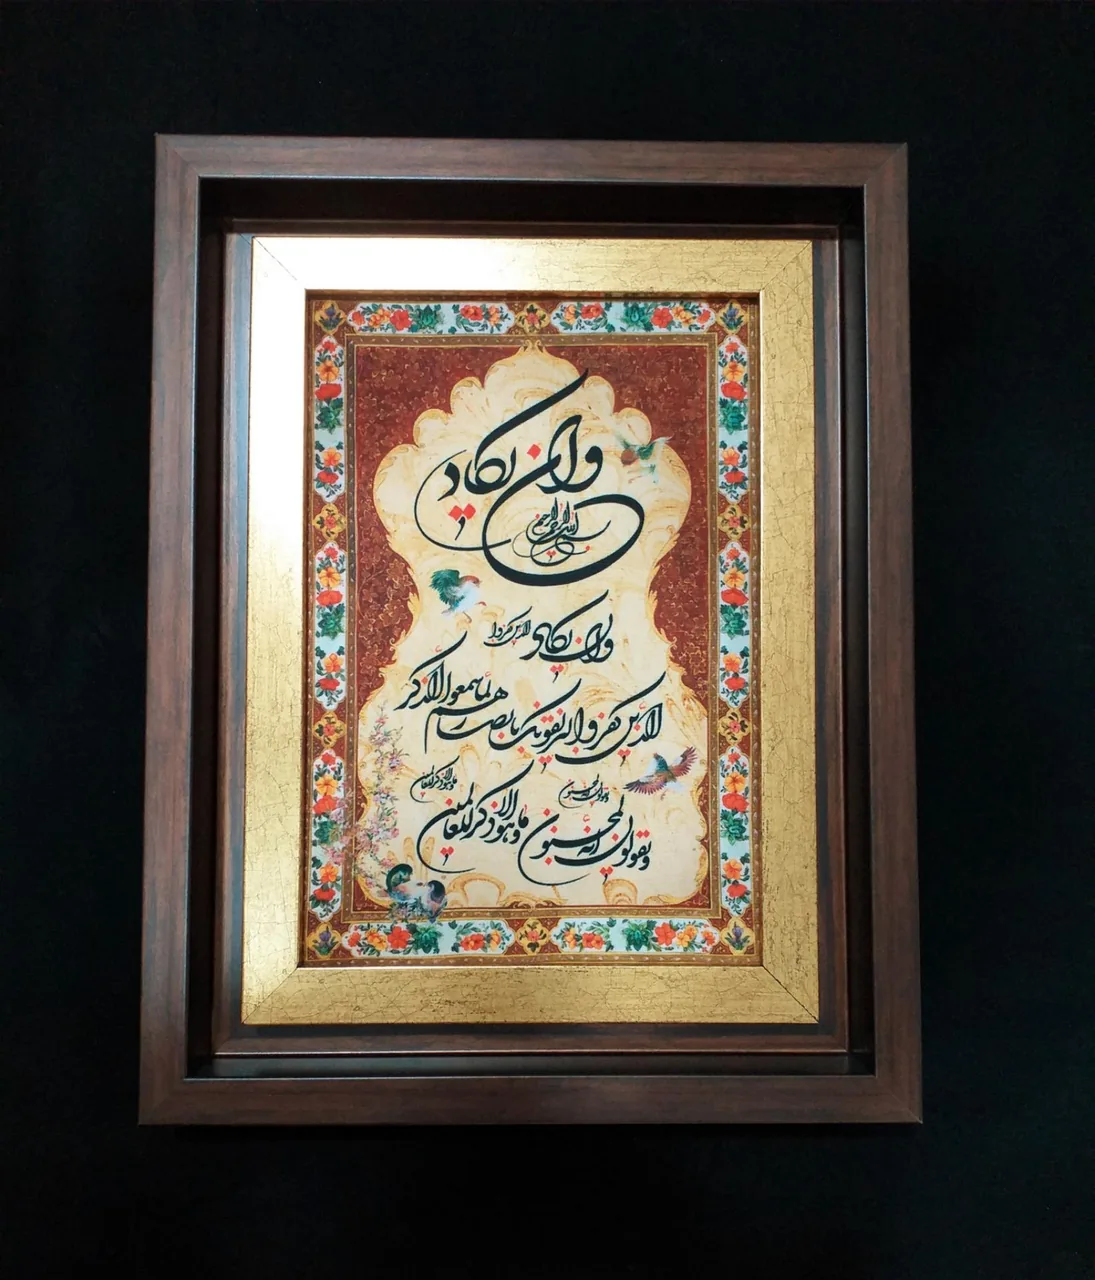 وان یکاد
بسم الله الرحمن الرحیم
وان یکاد الذین کفروا
الذین کفروا لیزلقونک بابصارهم لما سمعوا الذکر
ویقولون انه لمجنون وما هو الا ذکر للعالمین